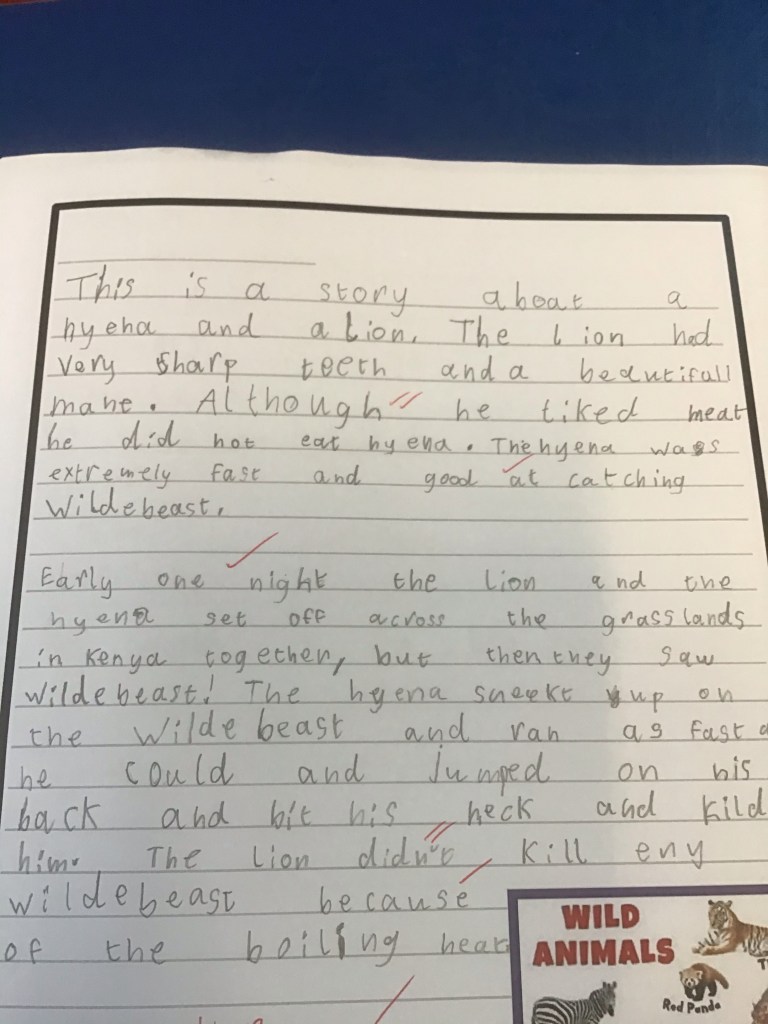 This is a story aboat a
hyena and a lion. The lion had
very sharp teeth and a beautifull
mane. Although he liked meat
he did not eat hyena. The hyena was
extremely fast and good at catching
wildebeast.
Early one night the lion and the
hyena set off across the grasslands
in Kenya together, but then they saw
wildebeast! The hyena sneekt up on
the wildebeast and ran as fast a
he could and jumped on his
back and bit his neck and kild
him. The lion didn't kill eny
wildebeast because
of the boiling heat
WILD
ANIMALS
Red Panda